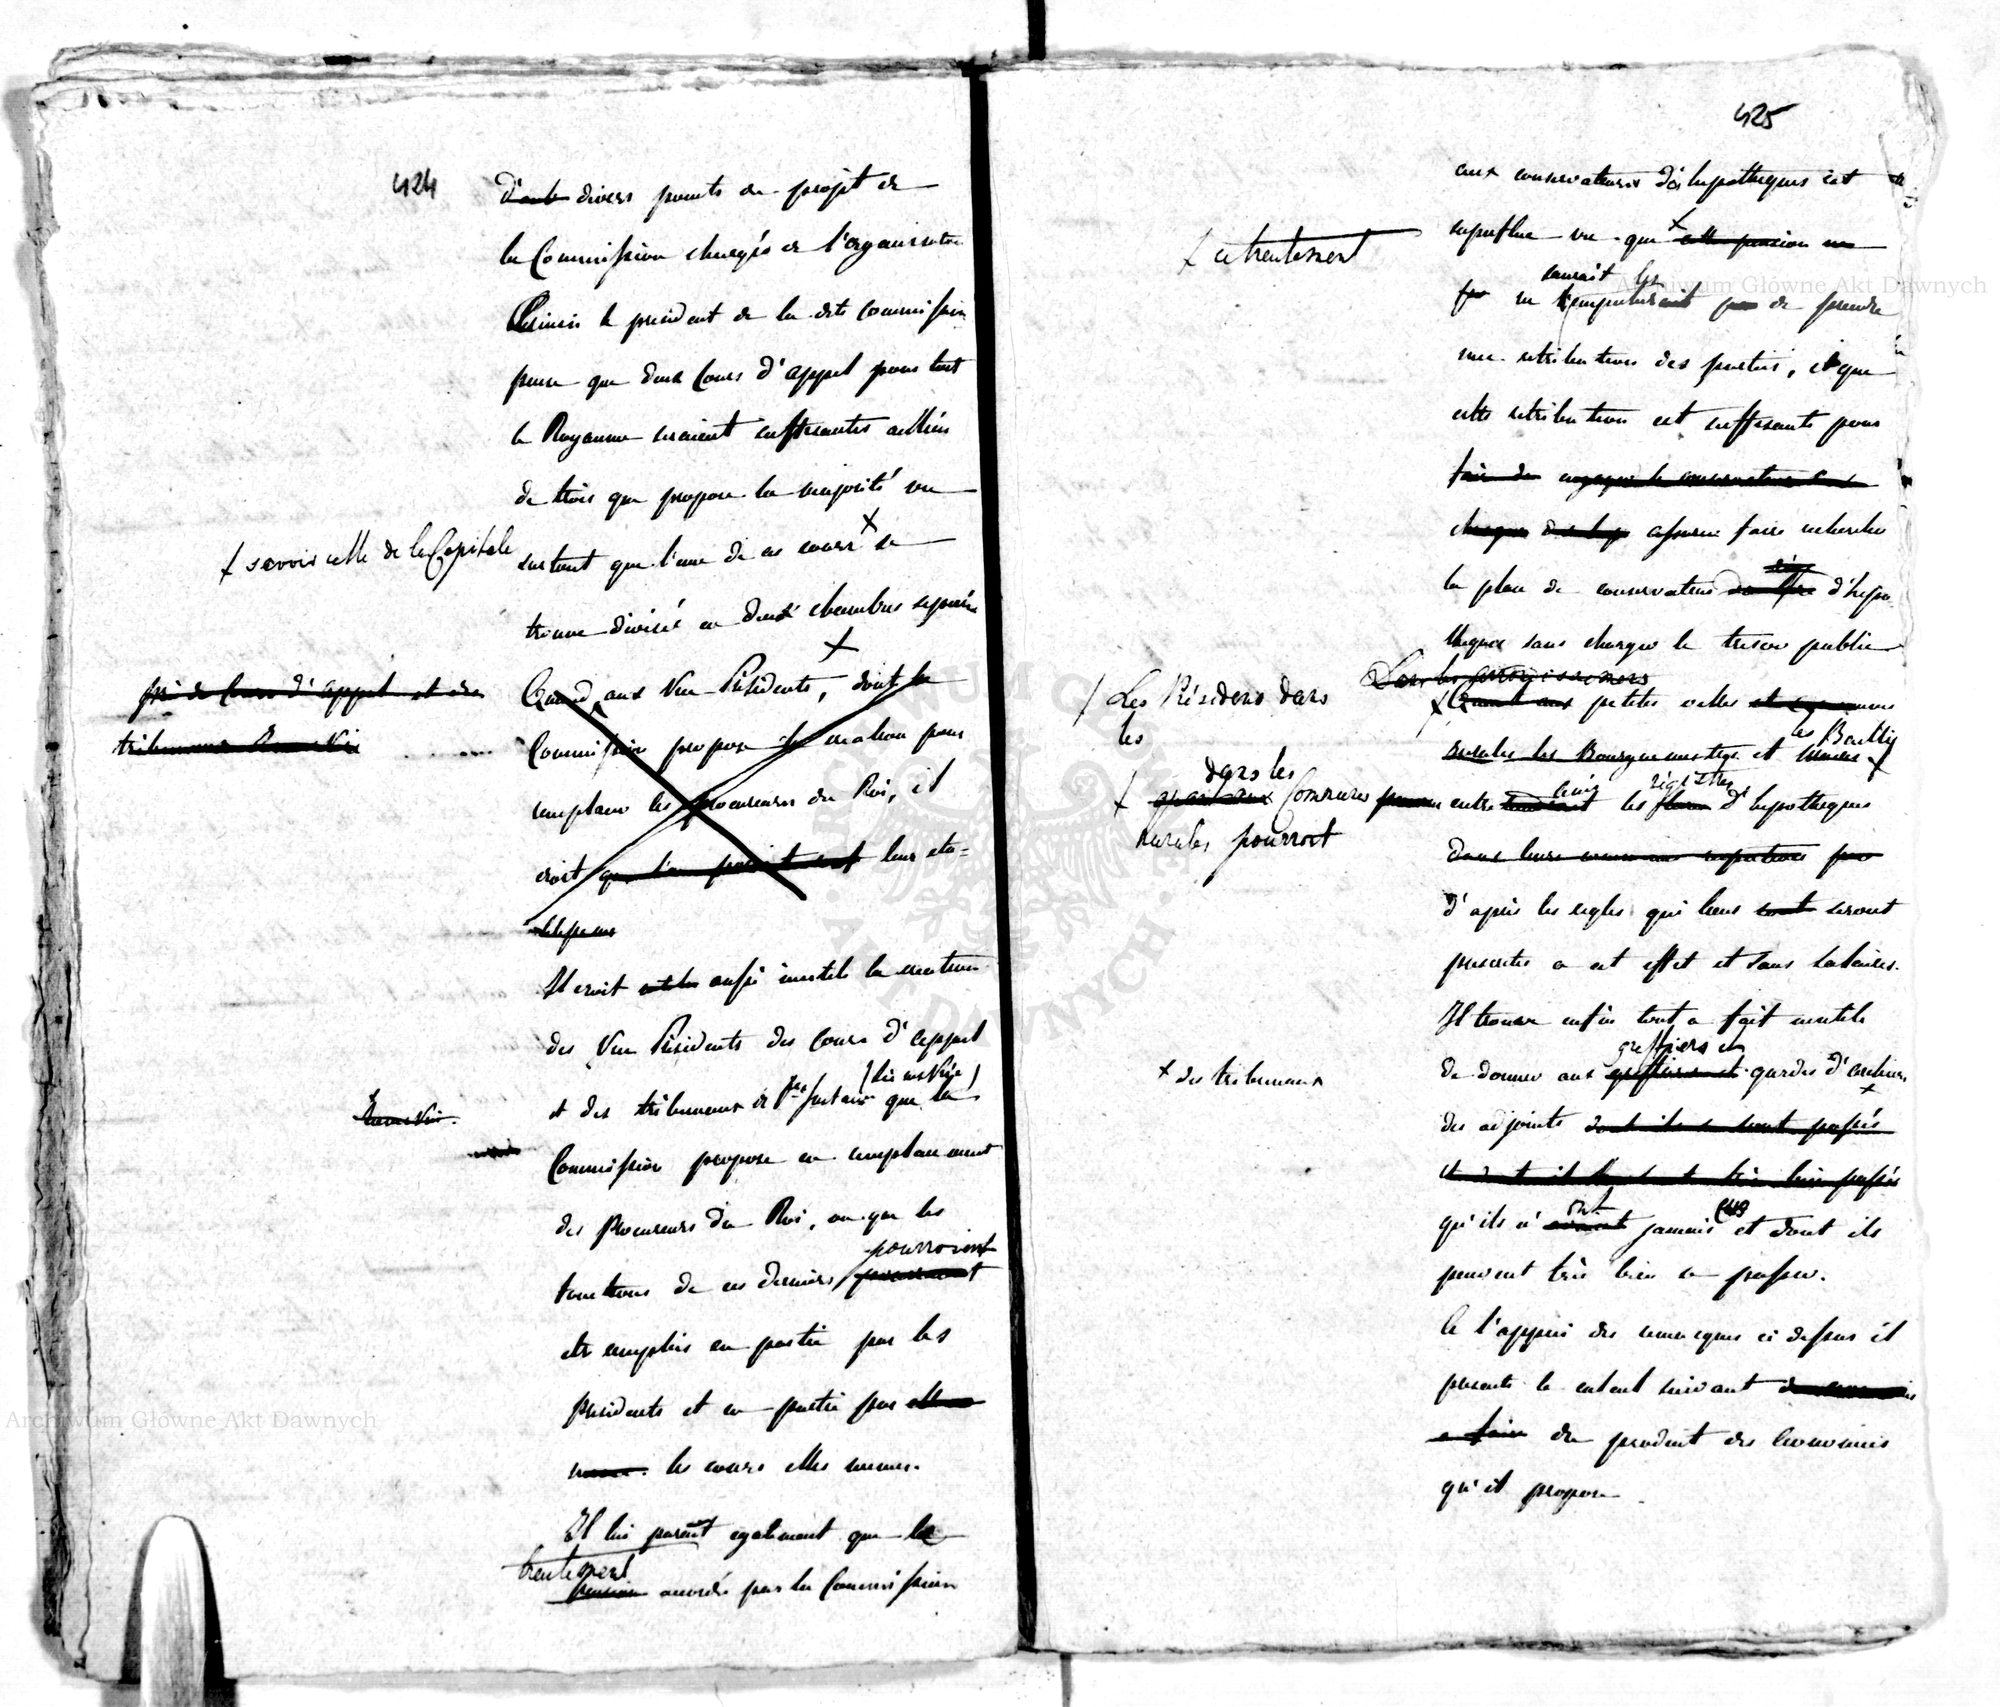 424
divers points du projet de
la Commission chargée de l'organisation
le president de la dite commission
pense que deux Cours d'appel pour tout
le Royaume seraient suffisantes au lieu
de trois que propose la majorité vu
+ savoir celle de la Capitale
surtout que l'une de ces cours + se
trouve divisée en deux chambres separées
+
pri de Cours d'appel et des
tribunaux
Quand aux Vice Présidents, dont la
Commission propose la creation pour
remplacer les procureurs du Roi, il
croit que l'on leur eta-
Il croit aussi inutile la creation
des Vice Présidents des Cours d'appel
et des tribunaux de 1ère instance que la
Commission propose en remplacement
des Procureurs du Roi, vu que les
pourroient
fonctions de ces derniers
etre remplies en partie par les
presidents et en partie par
les cours elles memes.
Il lui parait egalement que le
traitement
pension accordé par la Commission
425
aux conservateurs des hypotheques est
+ ce traitement
superflue vu que + cette pension ne
saurait les
empecher de prendre
une retribution des parties, et que
cette retribution est suffisante pour
faire rechercher
la place de conservateur d'hypo-
theques sans charger le tresor public
Dans les
+ Les Résidens dans
les
Quant aux petites villes
les Bailly
les Bourguemestres et
dans les
+ Communes
Rurales pourront
registres
les d'hypotheques
dans leurs communes respectives
d'après les regles qui leur sont seront
prescrites a cet effet et sans salaires.
Il trouve enfin tout a fait inutile
greffiers et
de donner aux greffiers et gardes d'archives
+ des tribunaux
+
des adjoints dont ils se sont passés
et dont ils très bien passés
ont eus
qu'ils n' jamais et dont ils
peuvent très bien se passer.
A l'appui des remarques ci dessus il
presente le calcul suivant
a faire du produit des Economies
qu'il propose.
Archiwum Główne Akt Dawnych
Archiwum Główne Akt Dawnych